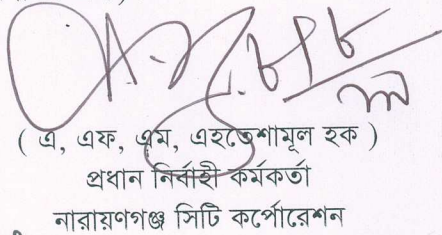 ( এ, এফ, এম, এহতেশামূল হক )
প্রধান নির্বাহী কর্মকর্তা
নারায়ণগঞ্জ সিটি কর্পোরেশন